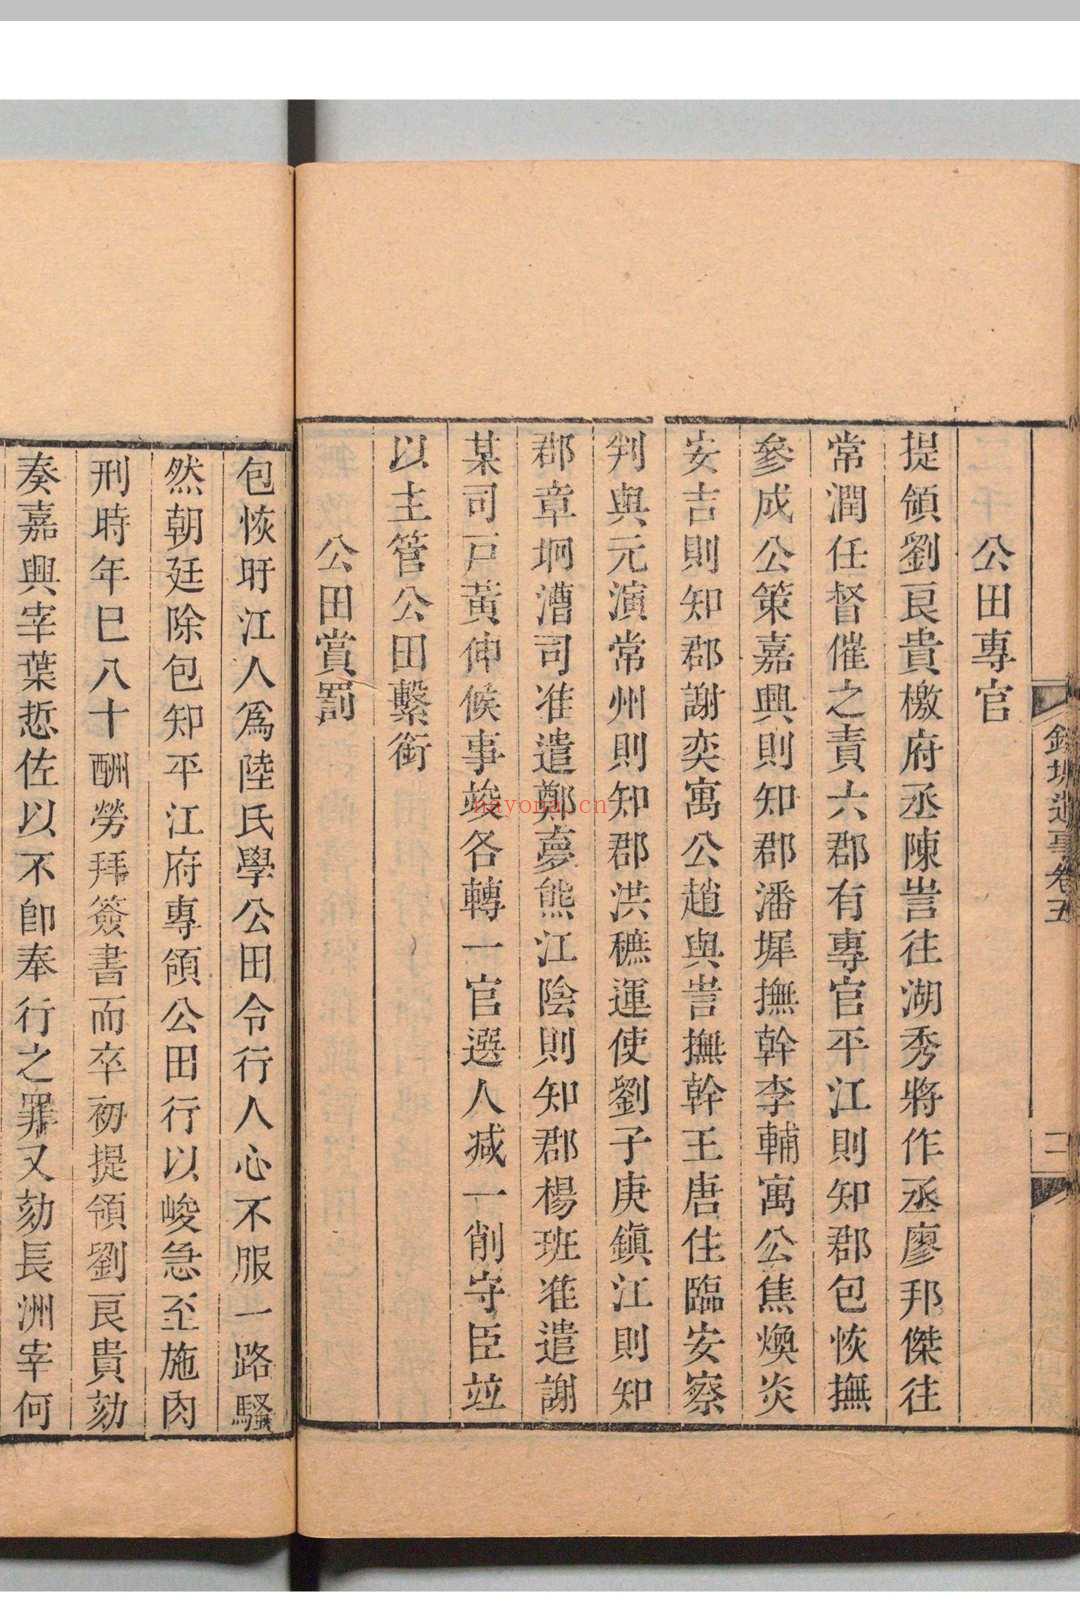 錢塘遺事卷五
二
公田專官
提領劉良貴檄府丞陳訔往湖秀將作丞廖邦傑往
常潤任督催之責六郡有專官平江則知郡包恢撫
參成公策嘉興則知郡潘墀撫幹李輔寓公焦煥炎
安吉則知郡謝奕寓公趙與訔撫幹王唐住臨安察
判與元演常州則知郡洪穮運使劉子庚鎮江則知
郡章坰漕司准遣鄭夢熊江陰則知郡楊班准遣謝
某司戸黃伸候事竣各轉一官選人减一削守臣竝
以主管公田繫銜
公田賞罰
包恢盱江人爲陸氏學公田令行人心不服一路騷
然朝廷除包知平江府專領公田行以峻急至施肉
刑時年巳八十酬勞拜簽書而卒初提領劉良貴劾
奏嘉興宰葉悊佐以不卽奉行之罪又劾長洲宰何
nayona.cn